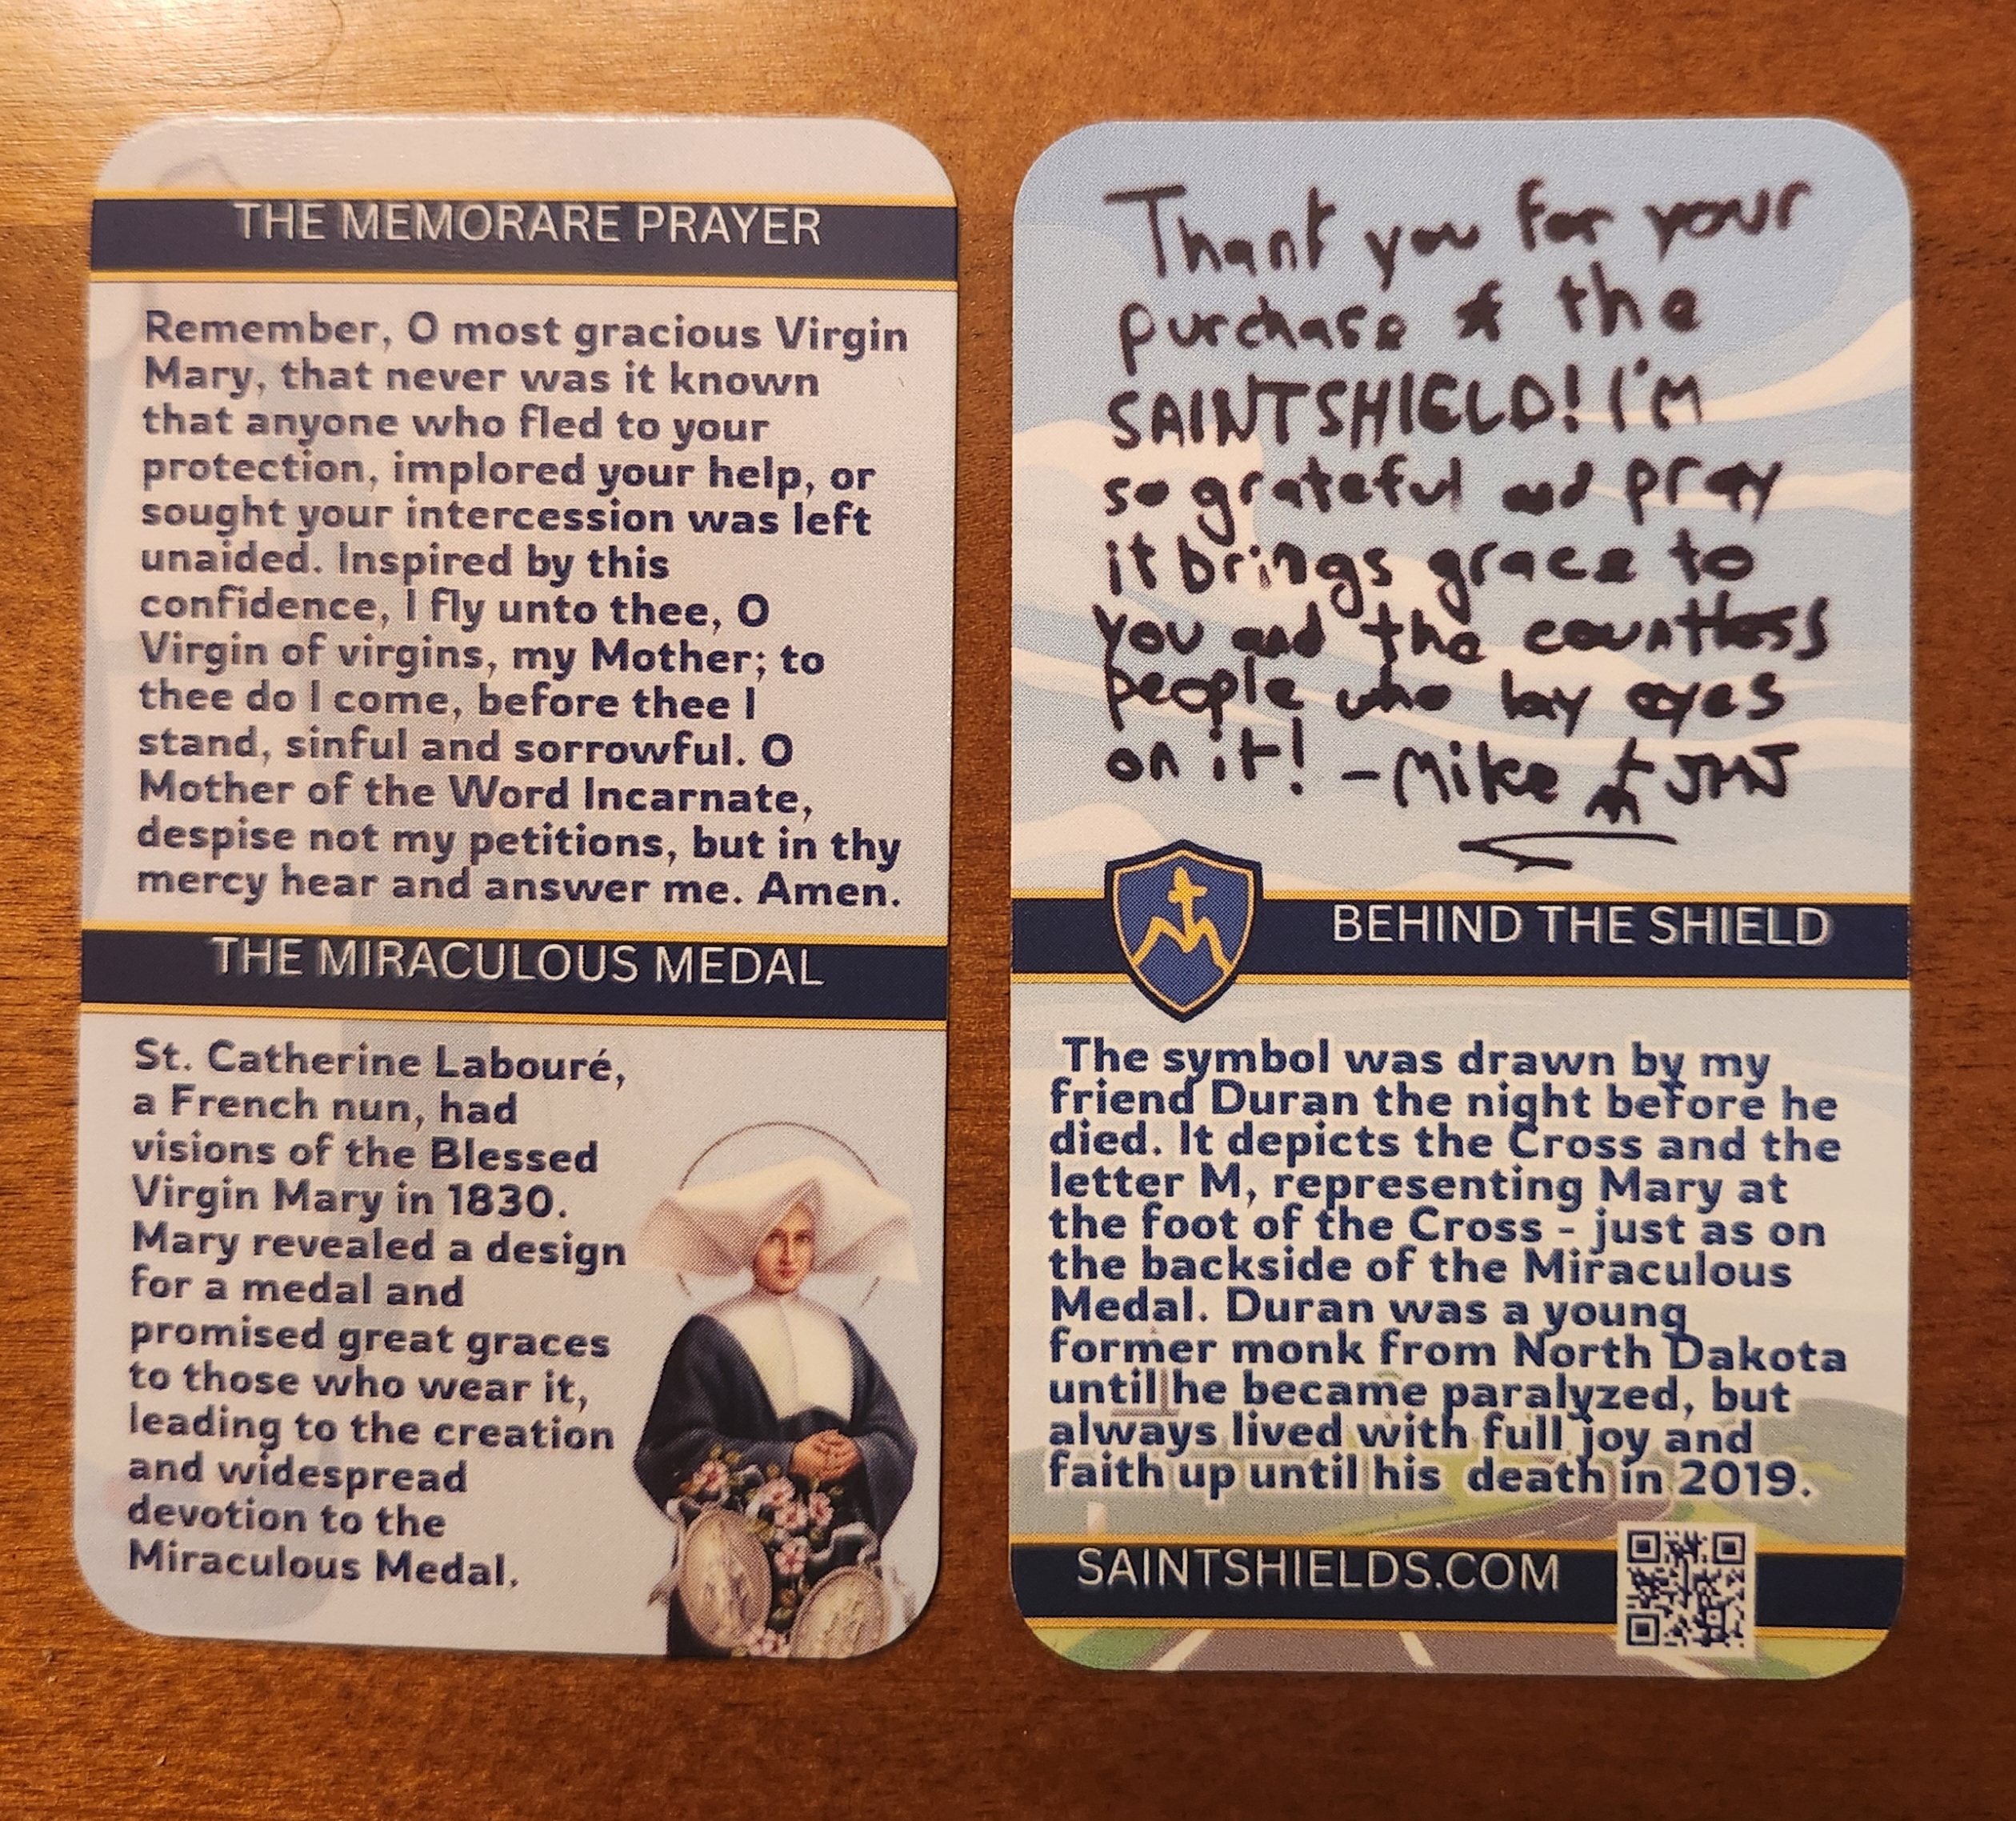 THE MEMORARE PRAYER
Remember, O most gracious Virgin
Mary, that never was it known
that anyone who fled to your
protection, implored your help, or
sought your intercession was left
unaided. Inspired by this
confidence, I fly unto thee, O
Virgin of virgins, my Mother; to
thee do I come, before thee I
stand, sinful and sorrowful. O
Mother of the Word Incarnate,
despise not my petitions, but in thy
mercy hear and answer me. Amen.
THE MIRACULOUS MEDAL
St. Catherine Labouré,
a French nun, had
visions of the Blessed
Virgin Mary in 1830.
Mary revealed a design
for a medal and
promised great graces
to those who wear it,
leading to the creation
and widespread
devotion to the
Miraculous Medal.
Thank you for your
purchase of the
SAINTSHIELD! I'M
so grateful and pray
it brings grace to
you and the countless
people who lay eyes
on it! - Mike JMJ
BEHIND THE SHIELD
The symbol was drawn by my
friend Duran the night before he
died. It depicts the Cross and the
letter M, representing Mary at
the foot of the Cross - just as on
the backside of the Miraculous
Medal. Duran was a young
former monk from North Dakota
until he became paralyzed, but
always lived with full joy and
faith up until his death in 2019.
SAINTSHIELDS.COM